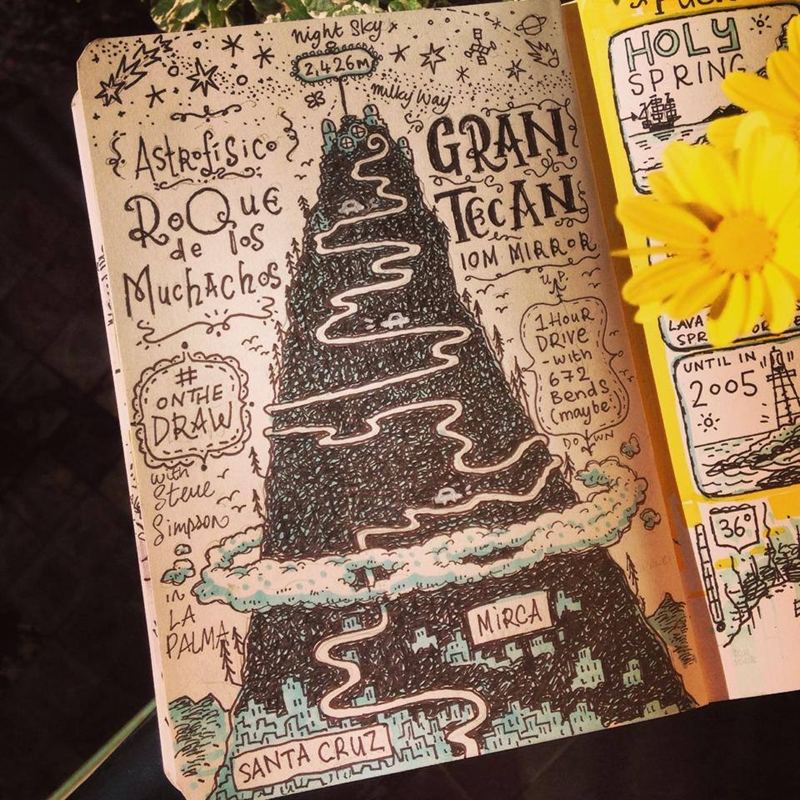 night sky
2,426M
milky way
ASTROFÍSICO
ROQUE
de los
MUCHACHOS
GRAN
TECAN
10M MIRROR
UP
1 HOUR
DRIVE
-with-
672
Bends
(maybe)
DOWN
#
ON THE
DRAW
with
Steve
Simpson
in
LA
PALMA
MIRCA
SANTA CRUZ
HOLY
SPRING
LAVA
UNTIL IN
2005
36°